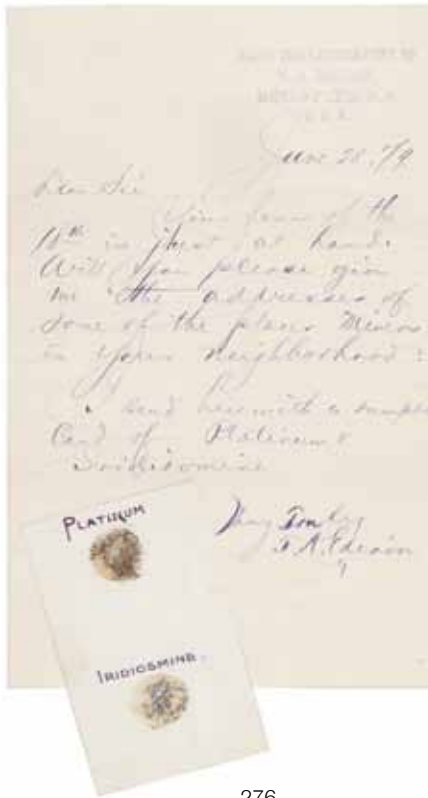 June 28, 79
Dear Sir
Your favor of the
18th is just at hand.
Will you please give
me the addresses of
some of the placer Miners
in your neighborhood?
I send herewith a sample
Card of Platinum &
Iridiosmine
Very Truly
T. A. Edison
PLATINUM
IRIDIOSMINE
276